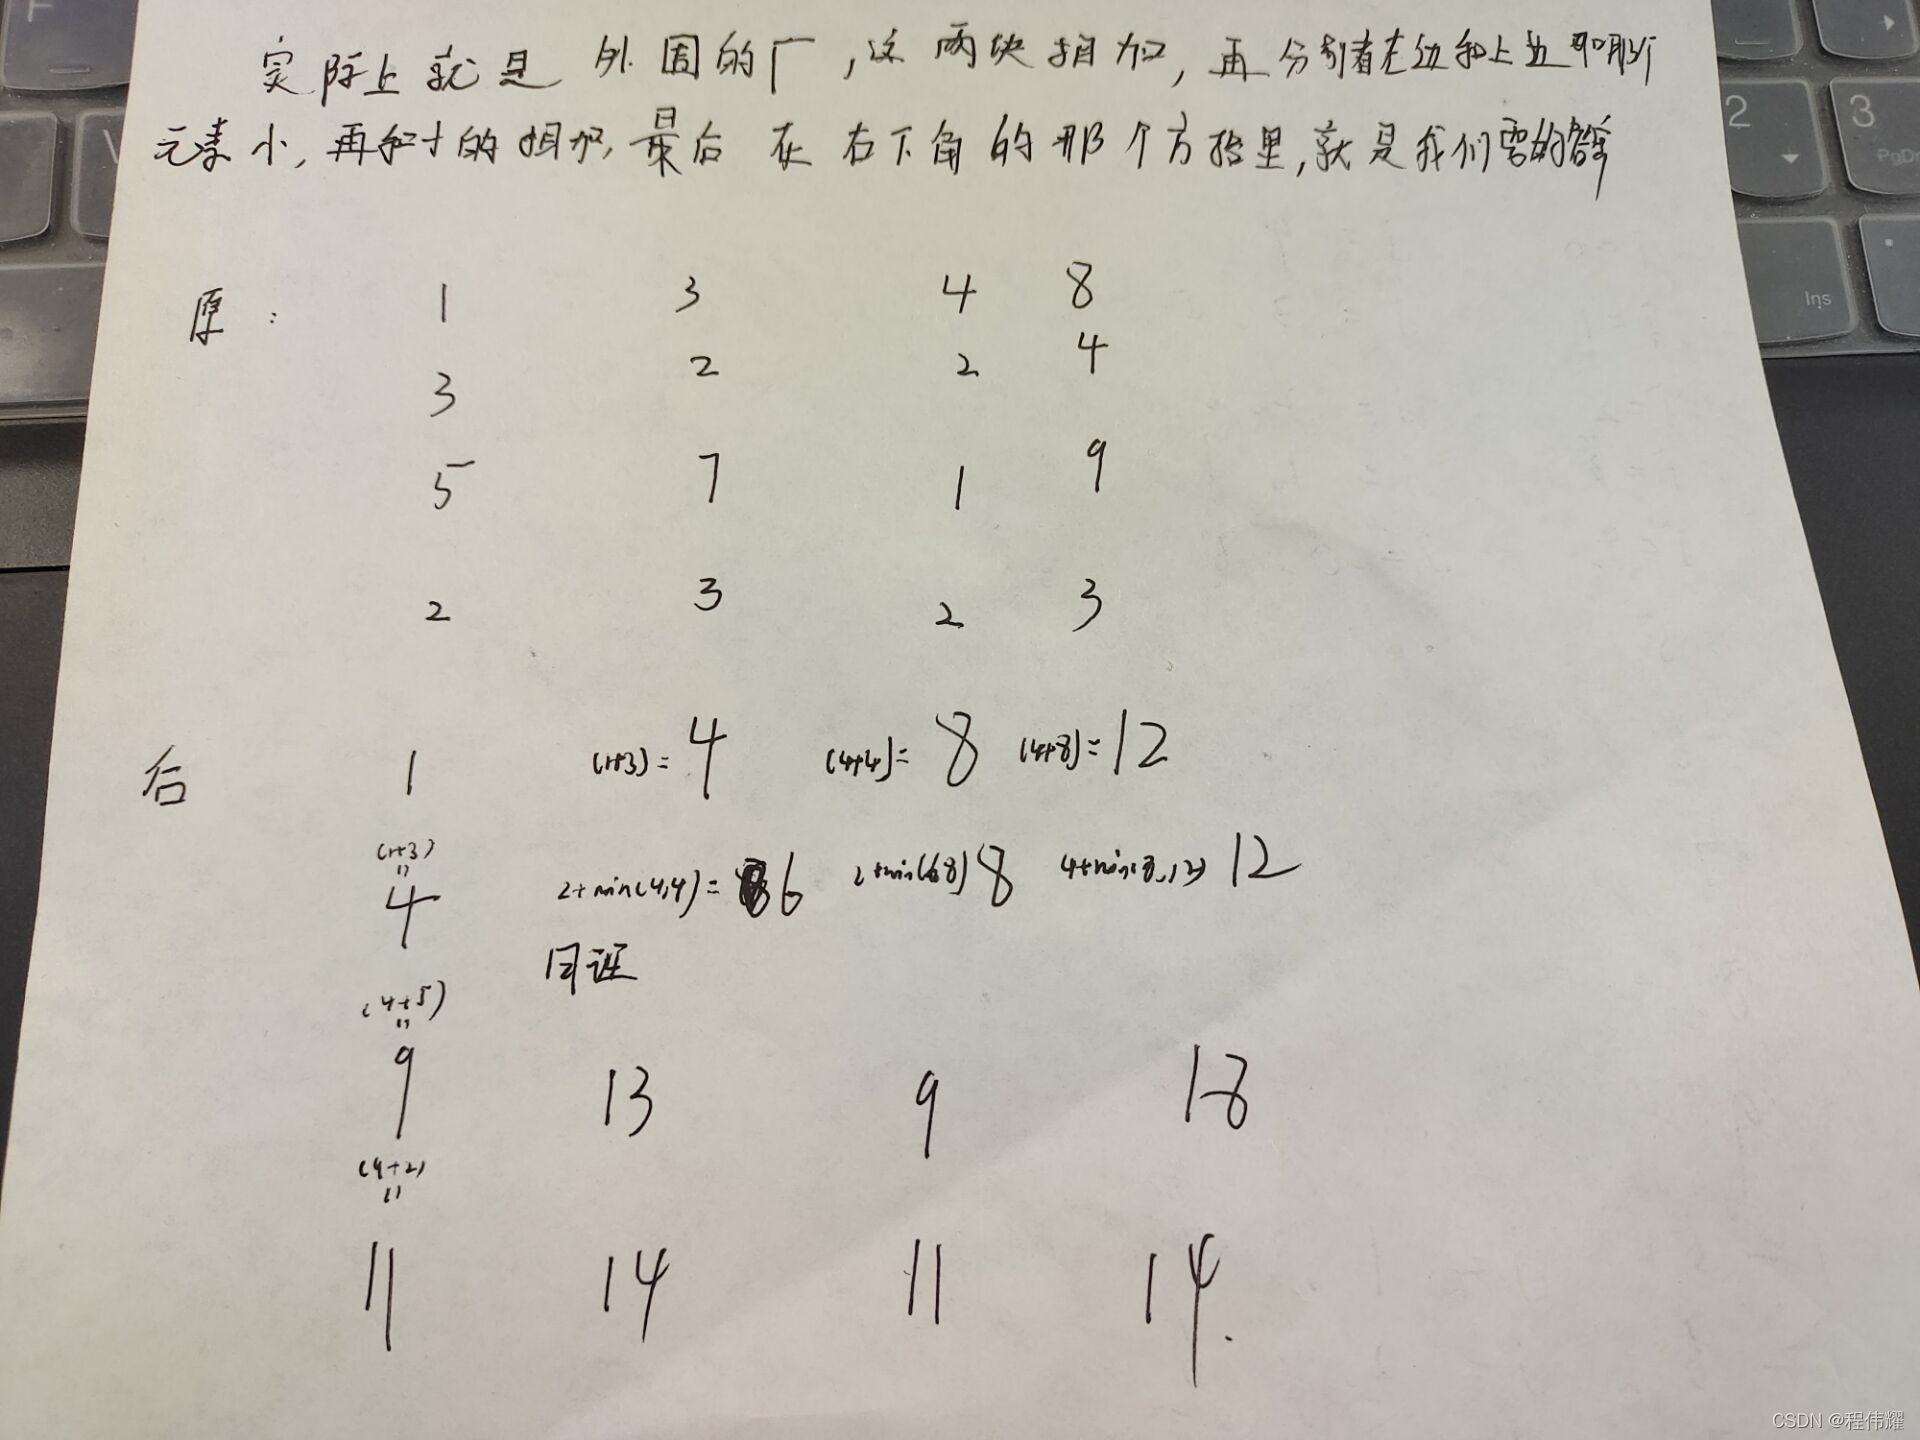 实际上就是 外围的厂,这两块相加,再分别看左边和上边 那个
元素小,再和小的相加,最后 在右下角的那个方格里,就是我们要的答案
原: 1 3 4 8
3 2 2 4
5 7 1 9
2 3 2 3
后 1 (1+3)=4 (4+4)=8 (4+8)=12
(1+3)
11
4 2+min(4,4)=6 2+min(6,8) 8 4+min(8,12) 12
同理
(4+5)
11
9 13 9 18
(9+2)
11
11 14 11 14.
F
W
2
3
PgDn
Ins
CSDN @程伟耀